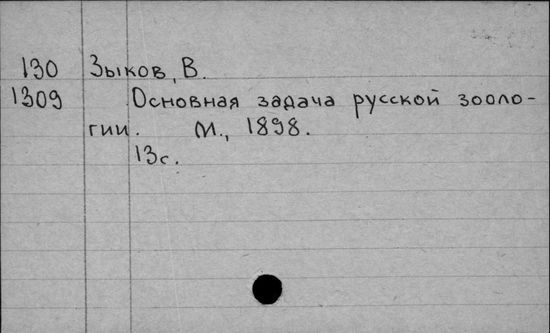 130 Зыков, В.
1309 Основная задача русской зооло-
гии. М., 1898.
13с.